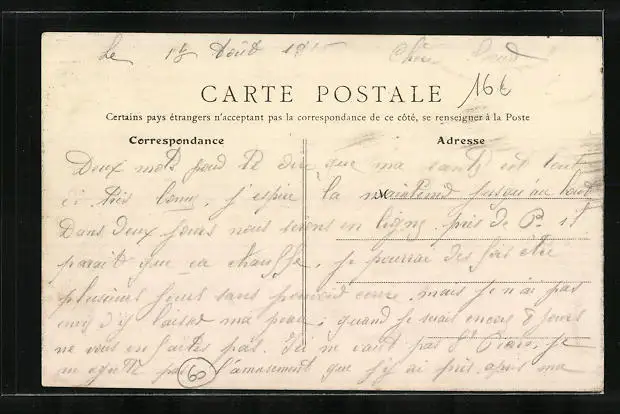 Le 17 Août 191
16€
CARTE POSTALE
Certains pays étrangers n'acceptant pas la correspondance de ce côté, se renseigner à la Poste
Correspondance Adresse
Deux mots pour te dire que ma santé est tout
très bonne, j'espère la maintenir jusqu'au bout
Dans deux jours nous serons en ligne, près de P. il
parait que ça chauffe, je pourrai des fois être
plusieurs jours sans pouvoir écrire, mais je n'ai pas
envie d'y laisser ma peau; quand je serais encore 8 jours
ne vous en faites pas. Ici ne vaut pas St je
60 l'amusement que j'y ai pris, après ma